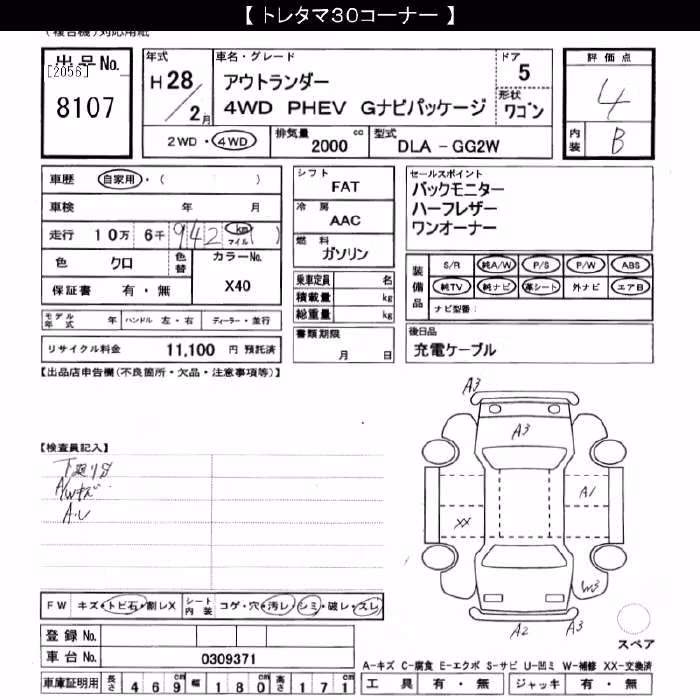 【 トレタマ30コーナー 】
(複合機)対応用紙
出品No.
[2056]
8107
年式
H 28 / 2 月
車名・グレード
アウトランダー
4WD PHEV Gナビパッケージ
ドア
5
形状
ワゴン
2WD・4WD
排気量
2000 cc
型式
DLA - GG2W
評価点
4
内装
B
車歴 自家用・( )
車検 年 月
走行 10万 6千 942 km マイル ( )
色 クロ
色替
カラーNo.
X40
保証書 有・無
モデル年式 年 ハンドル 左・右 ディーラー・並行
リサイクル料金 11,100 円 預託済
シフト
FAT
冷房
AAC
燃料
ガソリン
乗車定員 名
積載量 kg
総重量 kg
書類期限
月 日
セールスポイント
バックモニター
ハーフレザー
ワンオーナー
装備品
S/R 純A/W P/S P/W ABS
純TV 純ナビ 革シート 外ナビ エアB
ナビ型番:
後日品
充電ケーブル
【出品店申告欄(不良箇所・欠品・注意事項等)】
【検査員記入】
A/Wキズ
A・U
A3
A3
A1
XX
W3
A2
A3
スペア
FW キズ・トビ石・割レX
シート内装 コゲ・穴・汚レ・シミ・破レ・スレ
登録No.
車台No. 0309371
A-キズ C-腐食 E-エクボ S-サビ U-凹ミ W-補修 XX-交換済
車庫証明用 長さ 469 cm 幅 180 cm 高さ 171 cm
工具 有・無 ジャッキ 有・無